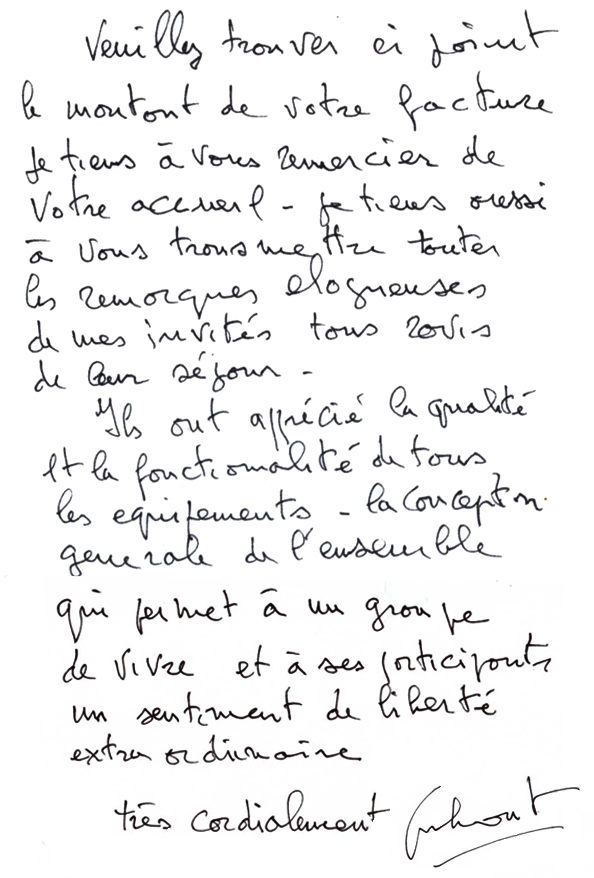 Veuillez trouver ci joint
le montant de votre facture
Je tiens à vous remercier de
votre accueil - je tiens aussi
à vous transmettre toutes
les remarques elogieuses
de mes invités tous ravis
de leur séjour -
Ils ont apprécié la qualité
et la fonctionnalité de tous
les equipements - la conception
generale de l'ensemble
qui permet à un groupe
de vivre et à ses participants
un sentiment de liberté
extraordinaire
très cordialement